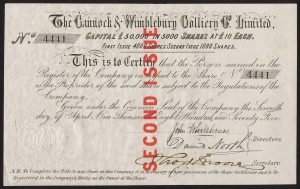 The Cannock & Wimblebury Colliery Co. Limited.
CAPITAL £50,000 IN 5000 SHARES AT £10 EACH.
FIRST ISSUE 4000 SHARES: SECOND ISSUE 1000 SHARES.
No. 4441
This is to Certify that the Person named in the
Register of the Company entitled to the Share No. 4441
is the Proprietor of the said Share subject to the Regulations of the
Company.
Given under the Common Seal of the Company the Seventh
day of April One Thousand Eight Hundred and Seventy Five
SECOND ISSUE
David North
DIRECTORS
Secretary
N.B. To Complete the Title to any Share in this Company
Registered in the Company's Books as the Owner of the Share